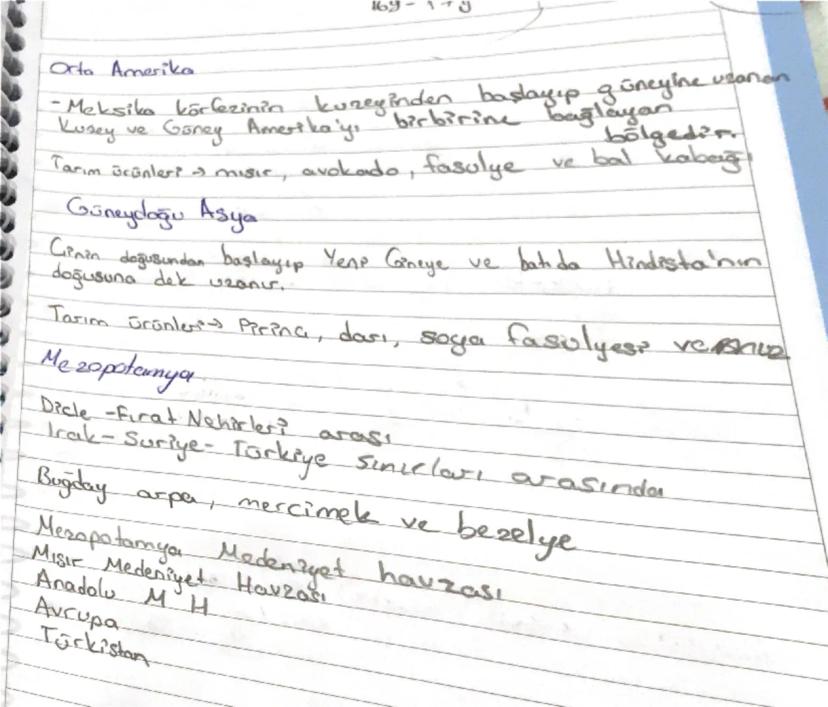 Orta Amerika
- Meksika körfezinin kuzeyinden başlayıp güneyine uzanan
Kuzey ve Güney Amerika'yı birbirine bağlayan
bölgedir.
Tarım ürünleri → mısır, avokado, fasulye ve bal kabağı
Güneydoğu Asya
Çinin doğusundan başlayıp Yeni Gineye ve batıda Hindista'nın
doğusuna dek uzanır.
Tarım ürünleri → Pirinç, darı, soya fasulyesi ve
Mezopotamya
Dicle - Fırat Nehirleri arası
Irak - Suriye - Türkiye sınırları arasında
Buğday arpa, mercimek ve bezelye
Mezopotamya Medeniyet havzası
Mısır Medeniyet Havzası
Anadolu M H
Avrupa
Türkistan